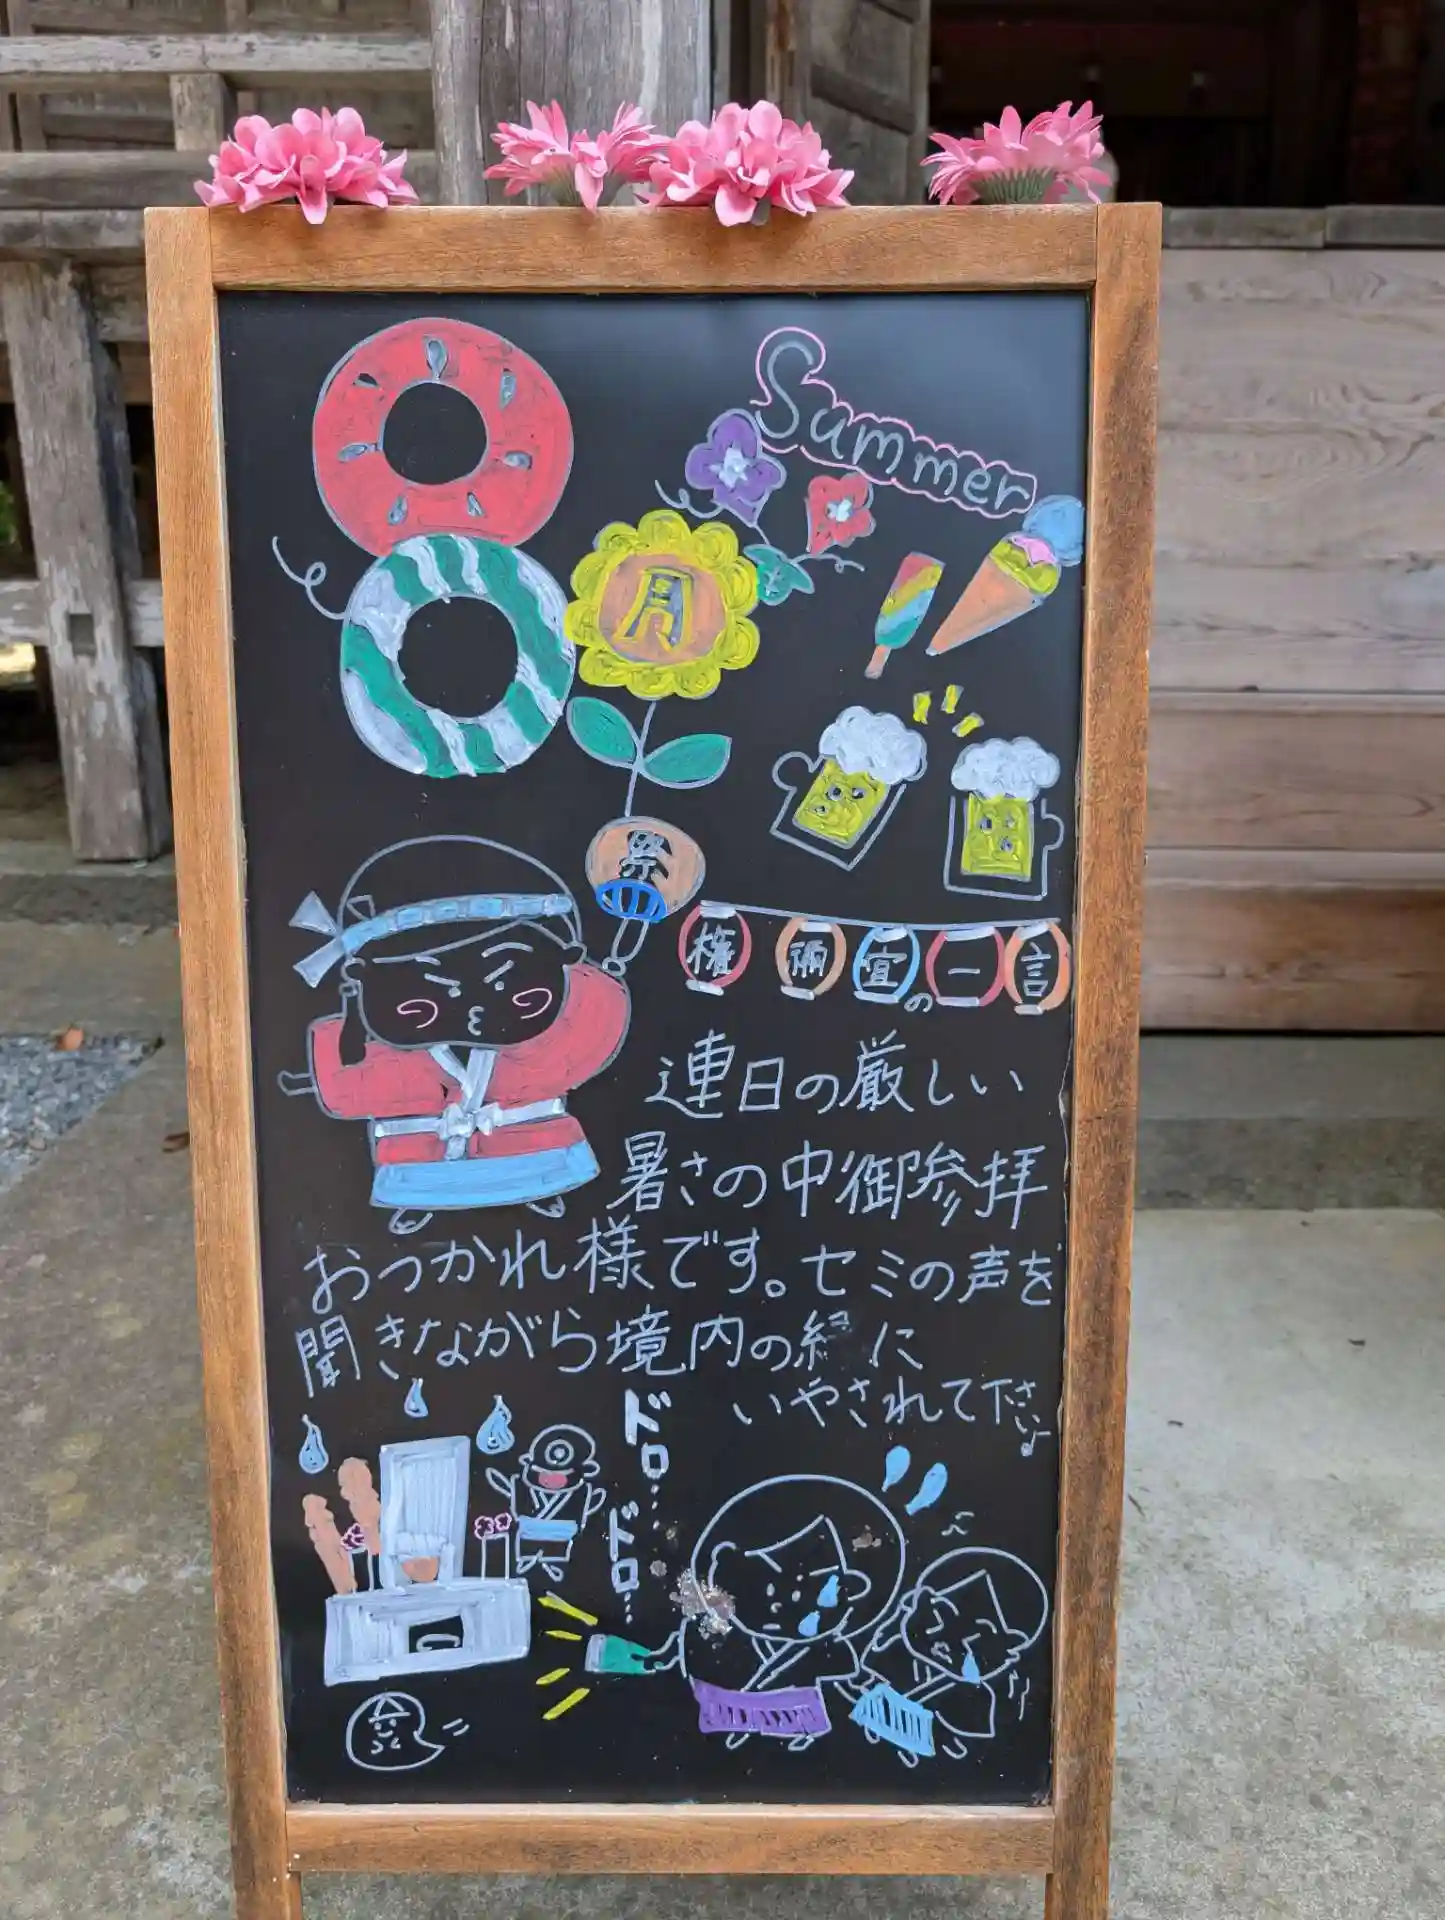 8月
Summer
祭
権禰宜の一言
連日の厳しい
暑さの中御参拝
おつかれ様です。セミの声を
聞きながら境内の緑に
いやされて下さいよ
ドロ…
ドロ…